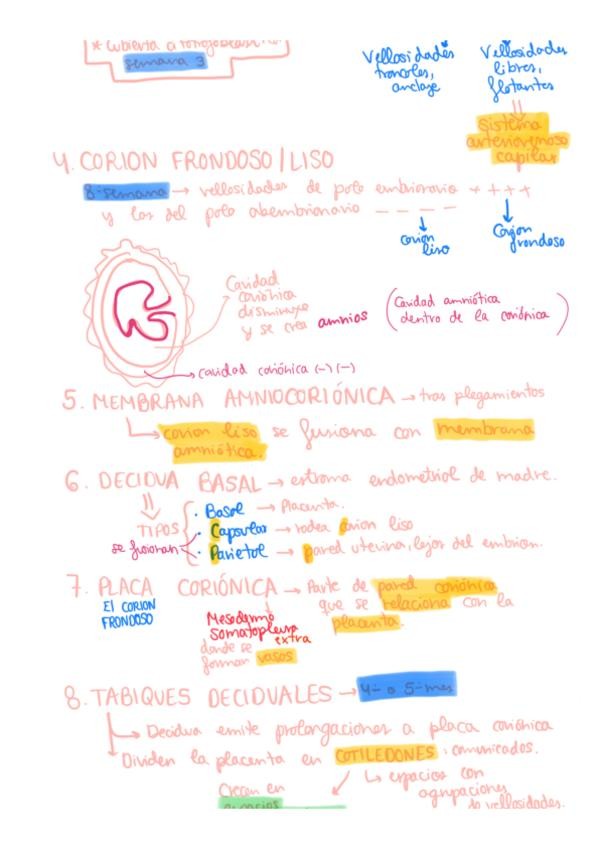 * Cubierta citotrofoblasto
semana 3
Vellosidades
troncales,
anclaje
Vellosidades
libres,
flotantes
Sistema
arteriovenoso
capilar
4. CORION FRONDOSO/LISO
8ª semana → vellosidades de polo embrionario ++++
y las del polo abembrionario ----
corion
liso
Corion
frondoso
Cavidad
coriónica
disminuye
y se crea amnios
(Cavidad amniótica
dentro de la coriónica)
→ cavidad coriónica (-)(-)
5. MEMBRANA AMNIOCORIÓNICA → tras plegamientos
→ corion liso se fusiona con membrana
amniótica.
6. DECIDUA BASAL → estroma endometrial de madre.
TIPOS
se fusionan
· Basal → Placenta.
· Capsular → rodea corion liso
· Parietal → pared uterina, lejos del embrion.
7. PLACA CORIÓNICA → Parte de pared coriónica
que se relaciona con la
placenta.
El CORION
FRONDOSO
Mesodermo
somatopleura
extra
donde se
forman vasos
8. TABIQUES DECIDUALES → 4º o 5º mes
→ Decidua emite prolongaciones a placa coriónica
Dividen la placenta en COTILEDONES, comunicados.
↳ espacios con
agrupaciones
de vellosidades.
Crecen en
espacios